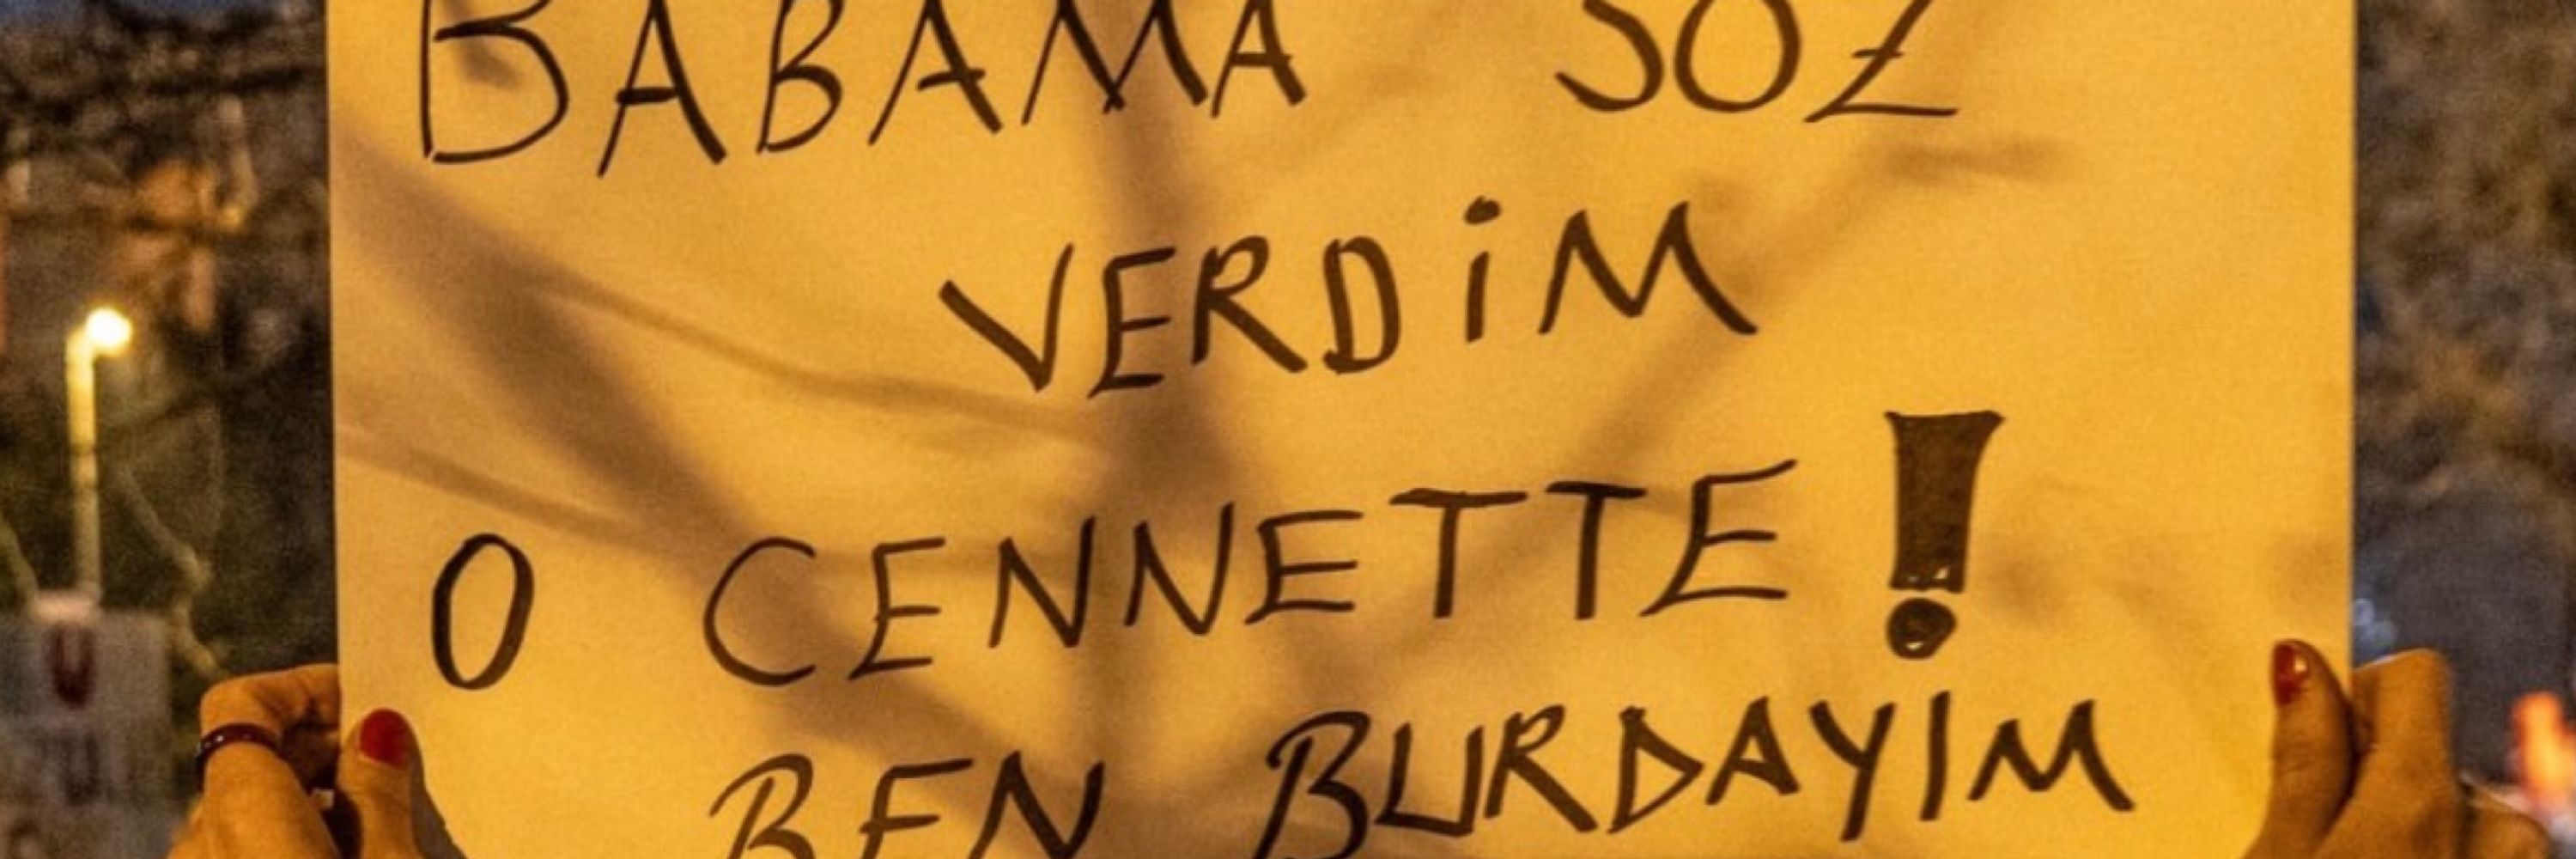 BABAMA SÖZ
VERDİM
O CENNETTE!
BEN BURDAYIM